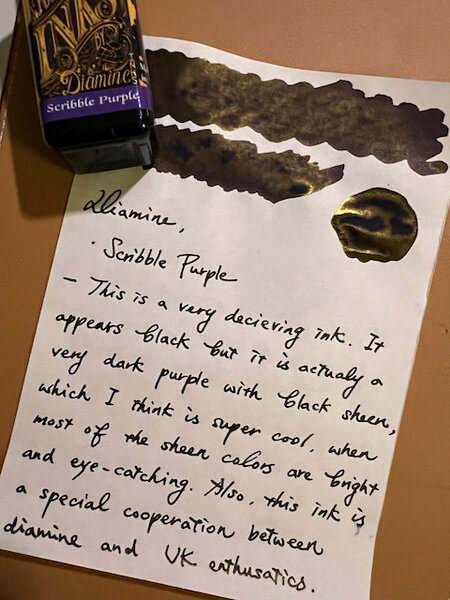 INK
Diamine
Scribble Purple
Diamine,
· Scribble Purple
— This is a very decieving ink. It
appears black but it is actualy a
very dark purple with black sheen,
which I think is super cool, when
most of the sheen colors are bright
and eye-catching. Also, this ink is
a special cooperation between
diamine and UK enthusatics.